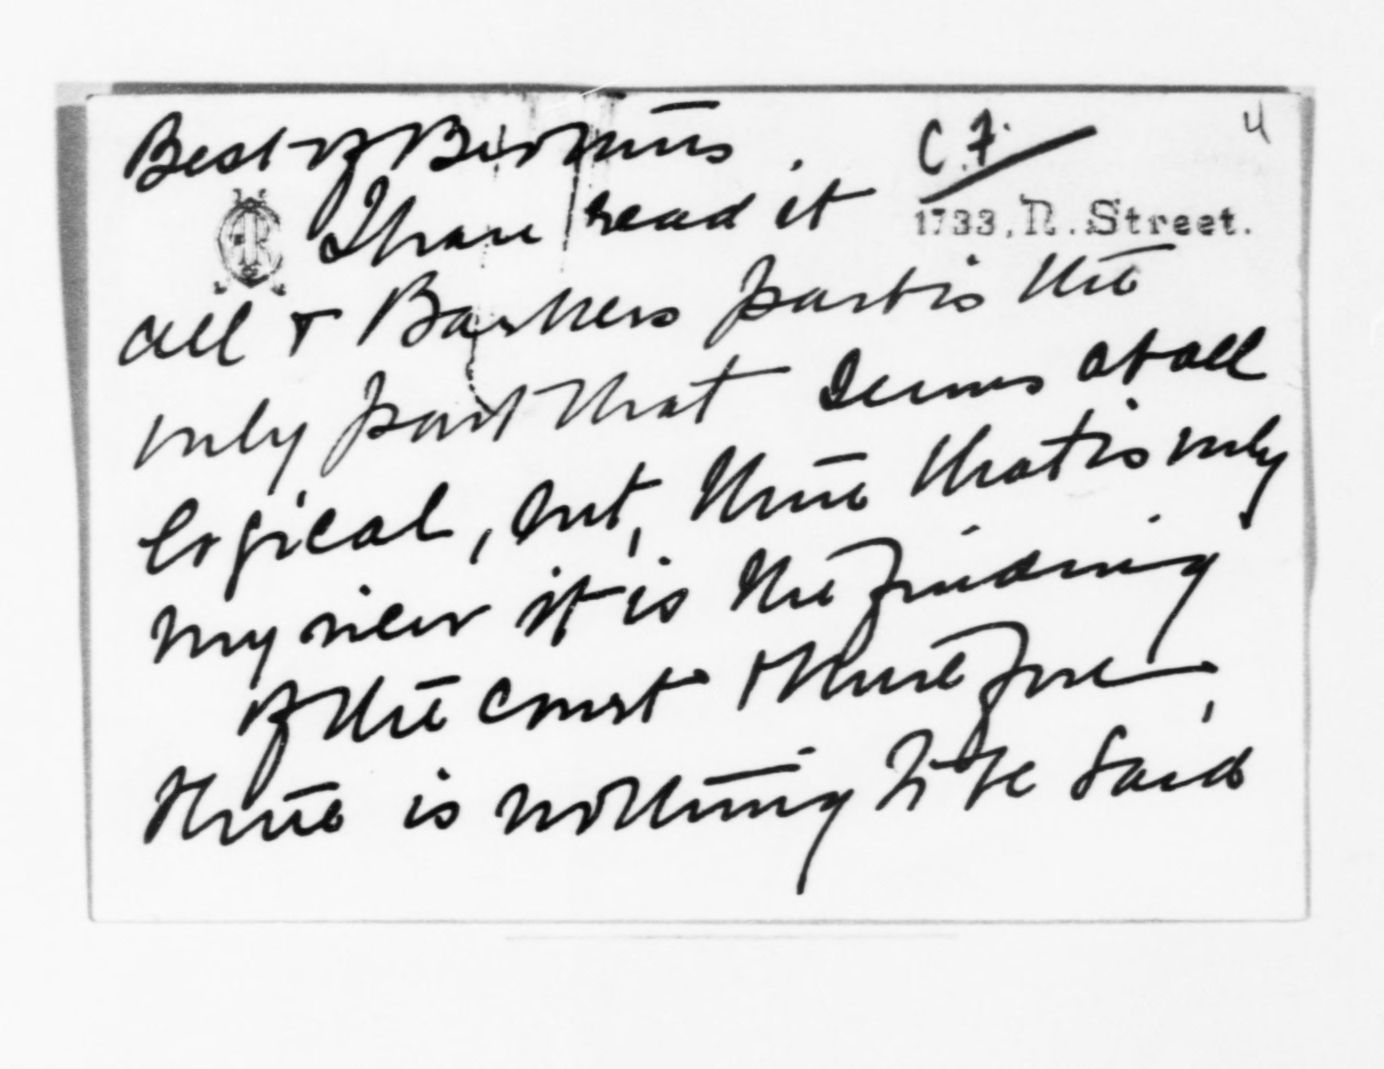 Best of Brothers. C.F. 4
1733, N. Street.
I have read it
all & Barkers part is the
only part that seems at all
logical, but, then that is only
my view it is the finding
of the court & therefore,
there is nothing to be said